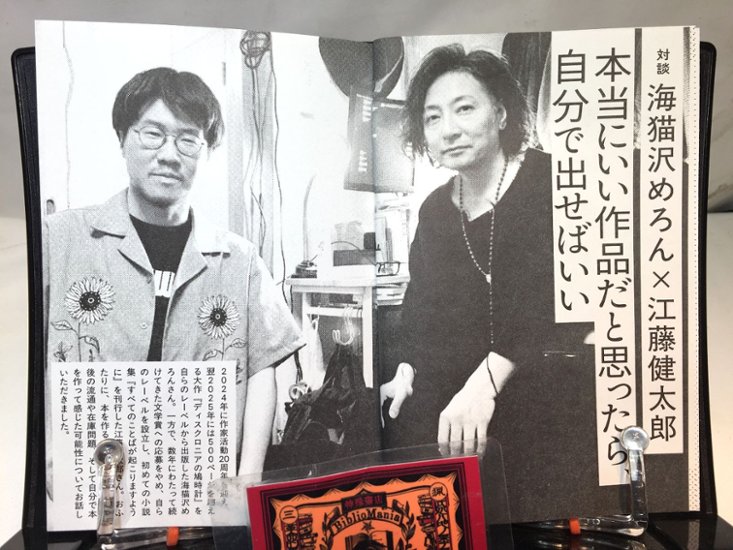 対談 海猫沢めろん×江藤健太郎
本当にいい作品だと思ったら、
自分で出せばいい
2024年に作家活動20周年
翌2025年には500ページを超え
る大作『ディスクロニアの鳩時計』を
自らのレーベルから出版した海猫沢め
ろんさん。一方で、数年にわたって続
けてきた文学賞への応募をやめ、自ら
のレーベルを設立し、初めての小説
集『すべてのことばが起こりますよう
に』を刊行した江 郎さん。おふ
たりに、本を作る
後の流通や在庫問題、そして自分で本
を作って感じた可能性についてお話し
いただきました。
BiblioMania